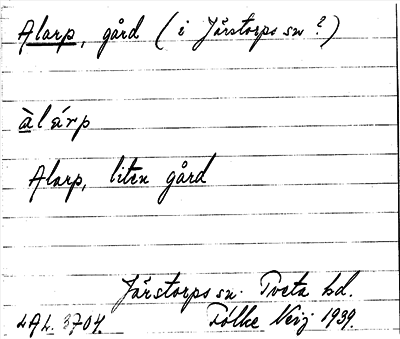 Alarp, gård (i Järstorps sn?)
àlárp
Alarp, liten gård
Järstorps sn. Tveta hd.
LAL. 3704. Fólke Neij 1939.